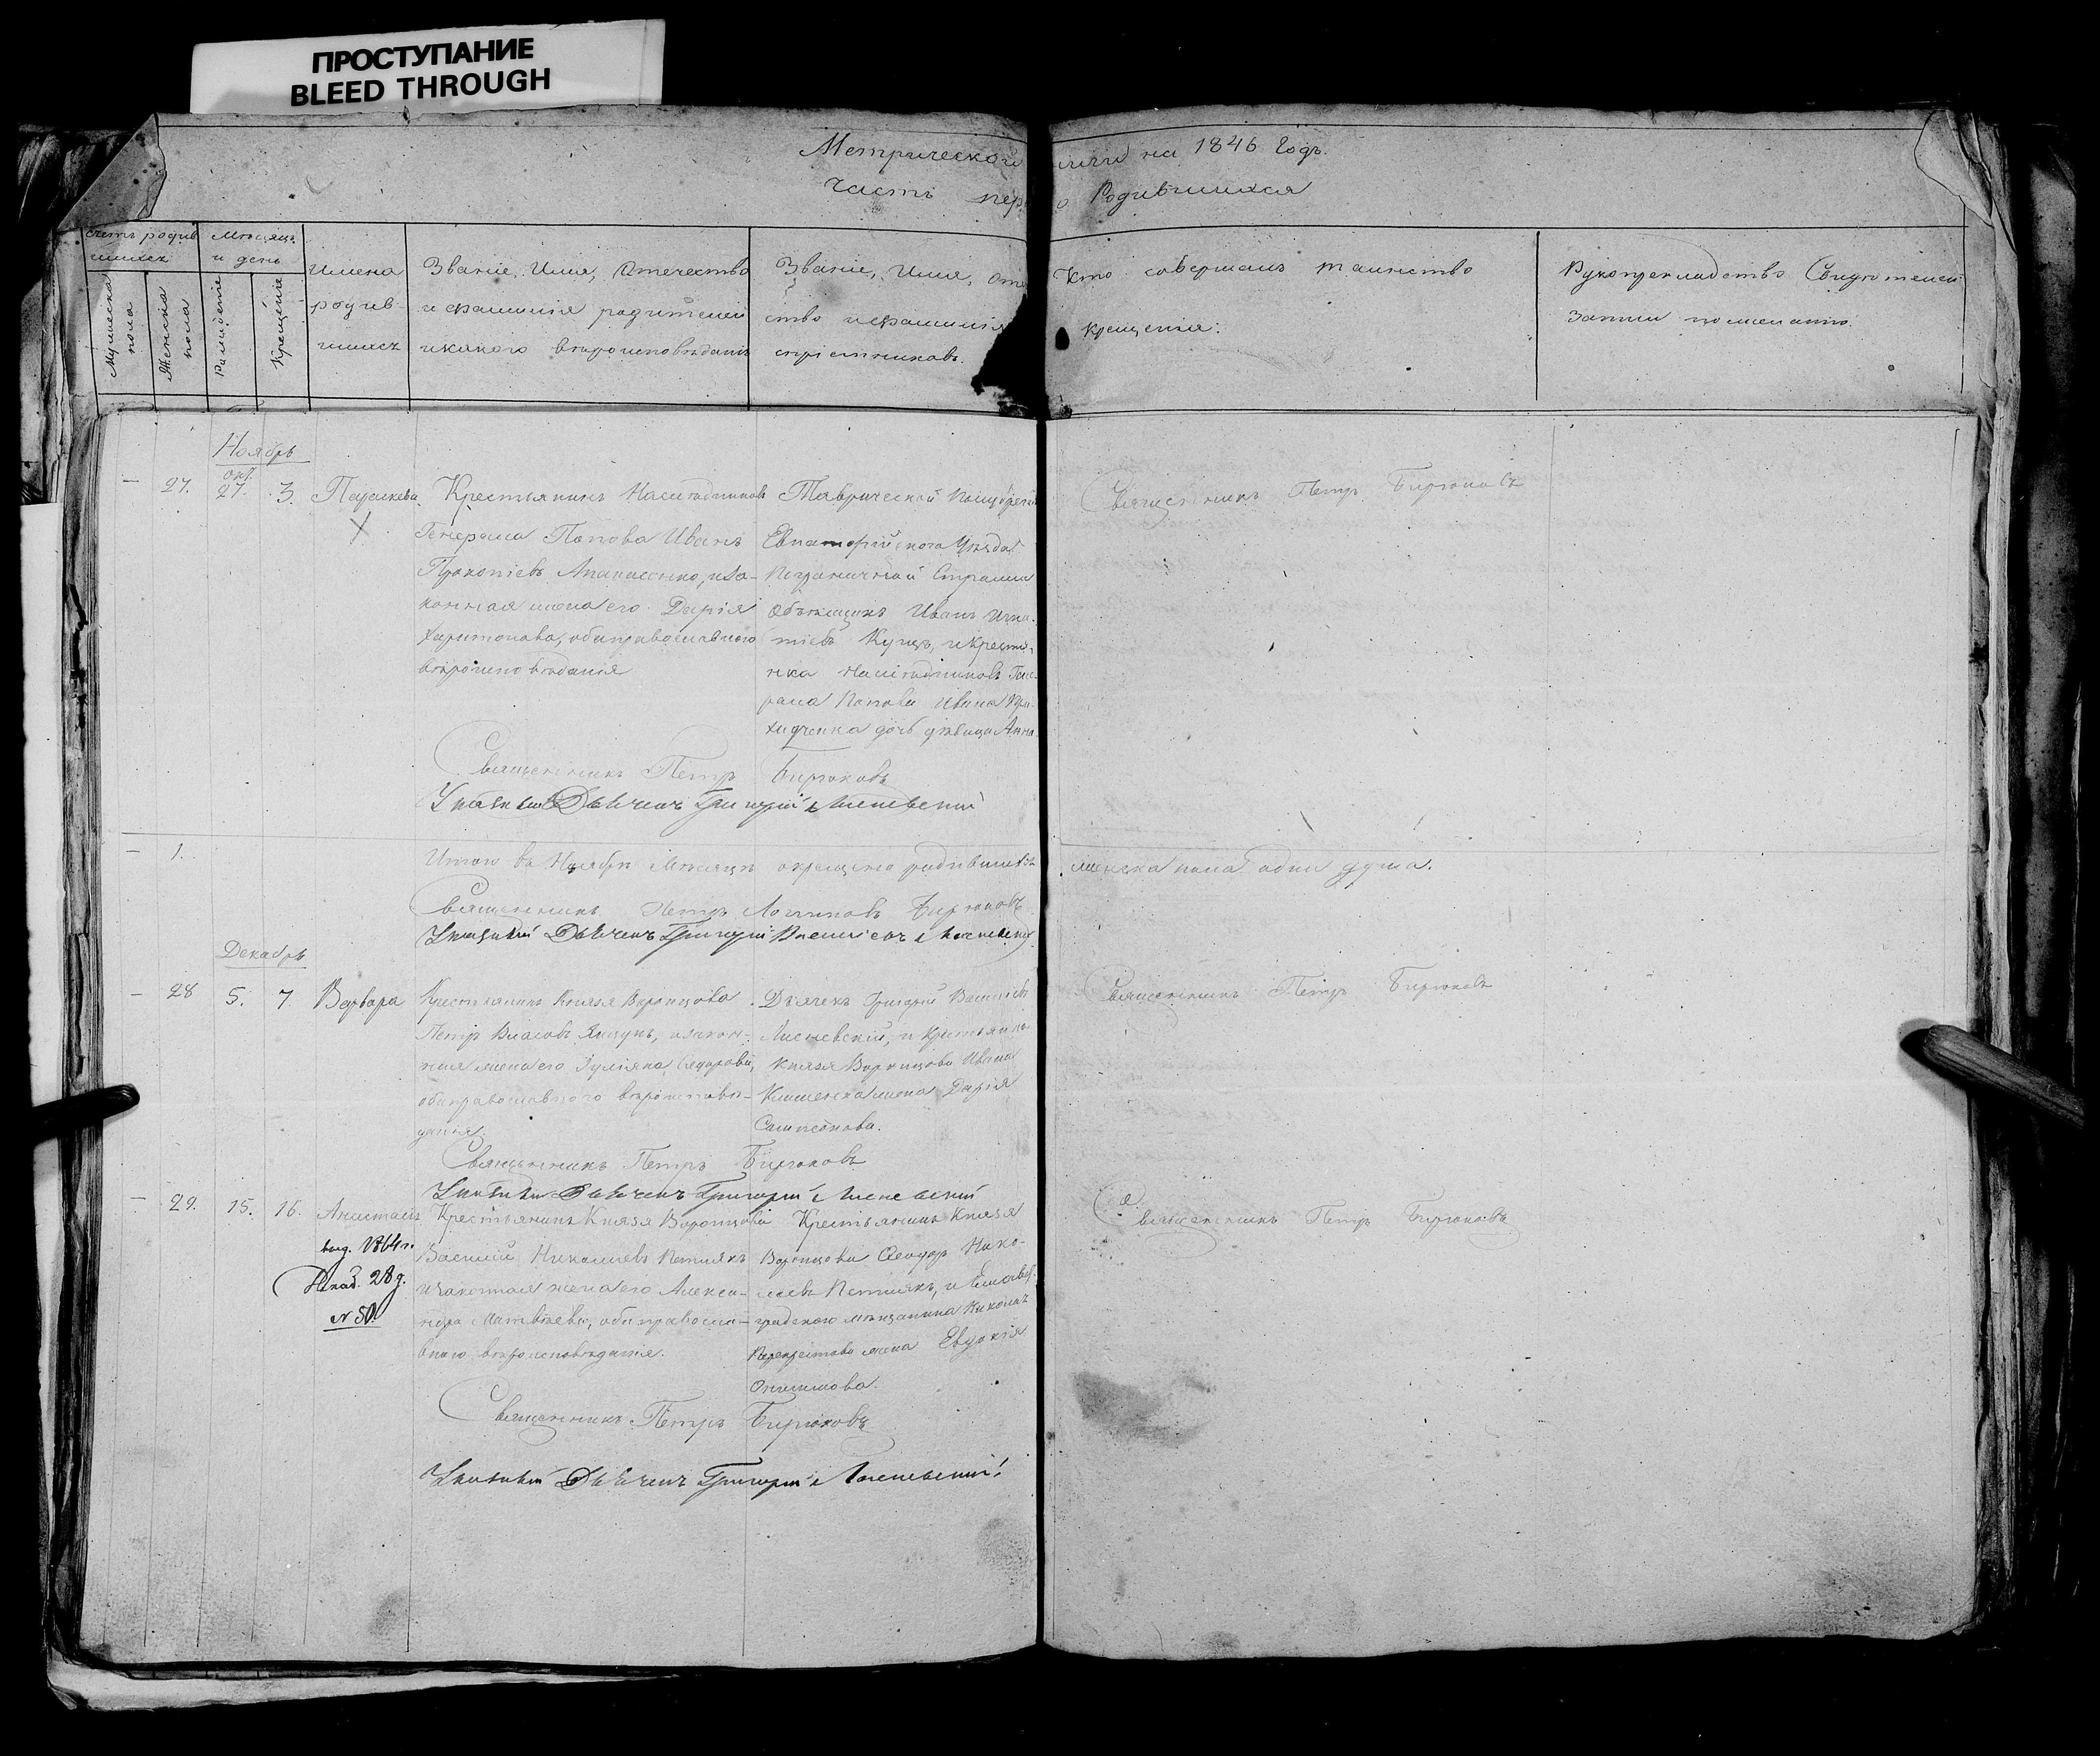 ПРОСТУПАНИЕ
BLEED THROUGH
Метрической книги на 1846 Годъ.
Часть пер о Родившихся
Счетъ родив
шихся
Мужеска
пола
Женска
пола
Мѣсяцъ
и день
Рожденіе
Крещеніе
Имена
родив-
шихся
Званіе, Имя, Отечество
и фамилія родителей
и какого вѣроисповѣданія
Званіе, Имя, Оте
ство и фамилія
воспріемниковъ.
Кто совершалъ таинство
крещенія.
Рукоприкладство Свидѣтелей
записи по желанію.
Ноябрь
Окт.
— 27. 27. 3. Параскева
Крестьянинъ Наслѣдниковъ
Генерала Попова Иванъ
Прокопіевъ Апанасенко, и за-
конная жена его Дарія
Харитонова, оба православнаго
вѣроисповѣданія
Таврической
Евпаторійскаго Уѣзда
Пограничной Стражи
Объѣзщикъ Иванъ Игна-
тіевъ Куцъ, и крестья-
нка Наслѣдниковъ Гене-
рала Попова Ивана
дочь дѣвица Анна
Священникъ Петръ Бирюковъ
Священникъ Петръ Бирюковъ
Указный Дьячекъ Григорій Лисневскій
— 1. Итого въ Ноябрѣ Мѣсяцѣ окрещено родившихся
женска пола одна душа.
Священникъ Петръ Логиновъ Бирюковъ
Указный Дьячекъ Григорій Васильевъ Лисневскій
Декабрь
— 28 5. 7. Варвара
Крестьянинъ Князя Воронцова
Петръ Власовъ и закон-
ная жена его Іуліяна Сидорова,
оба православнаго вѣроисповѣ-
данія.
Дьячекъ Григорій Васильевъ
Лисневскій, и Крестьянина
Князя Воронцова Ивана
Клименка жена Дарія
Сампсонова.
Священникъ Петръ Бирюковъ
Священникъ Петръ Бирюковъ
Указный Дьячекъ Григорій Лисневскій
— 29. 15. 16. Анастасія
выд. 1864 г.
Декаб. 28 д.
№ 50
Крестьянинъ Князя Воронцова
Василій Николаевъ Петлякъ
и законная жена его Алекса-
ндра Матвѣева, оба правосла-
внаго вѣроисповѣданія.
Крестьянинъ Князя
Воронцова Феодоръ Нико-
лаевъ Петлякъ, и Елисавет-
градскаго мѣщанина Николая
жена Евдокія
Онисимова.
Священникъ Петръ Бирюковъ
Священникъ Петръ Бирюковъ
Указный Дьячекъ Григорій Лисневскій